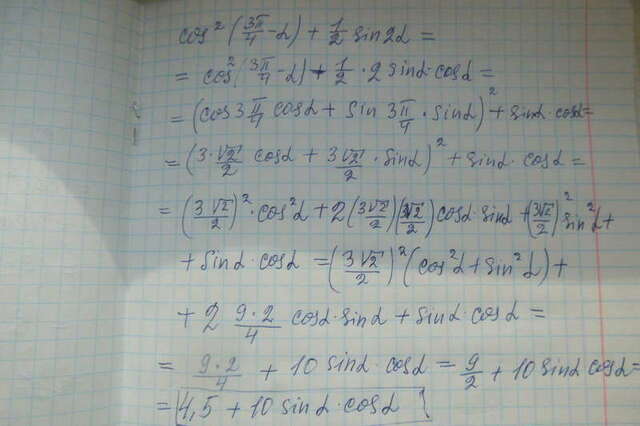 cos² (3π/4 - α) + 1/2 sin2α =
= cos² (3π/4 - α) + 1/2 · 2 sinα · cosα =
= (cos 3π/4 cosα + sin 3π/4 · sinα)² + sinα · cosα =
= (3·√2/2 cosα + 3√2/2 · sinα)² + sinα · cosα =
= (3√2/2)² · cos²α + 2(3√2/2)(3√2/2) cosα · sinα + (3√2/2)² sin²α +
+ sinα · cosα = (3√2/2)² (cos²α + sin²α) +
+ 2 9·2/4 cosα · sinα + sinα · cosα =
= 9·2/4 + 10 sinα · cosα = 9/2 + 10 sinα cosα =
= 4,5 + 10 sinα · cosα